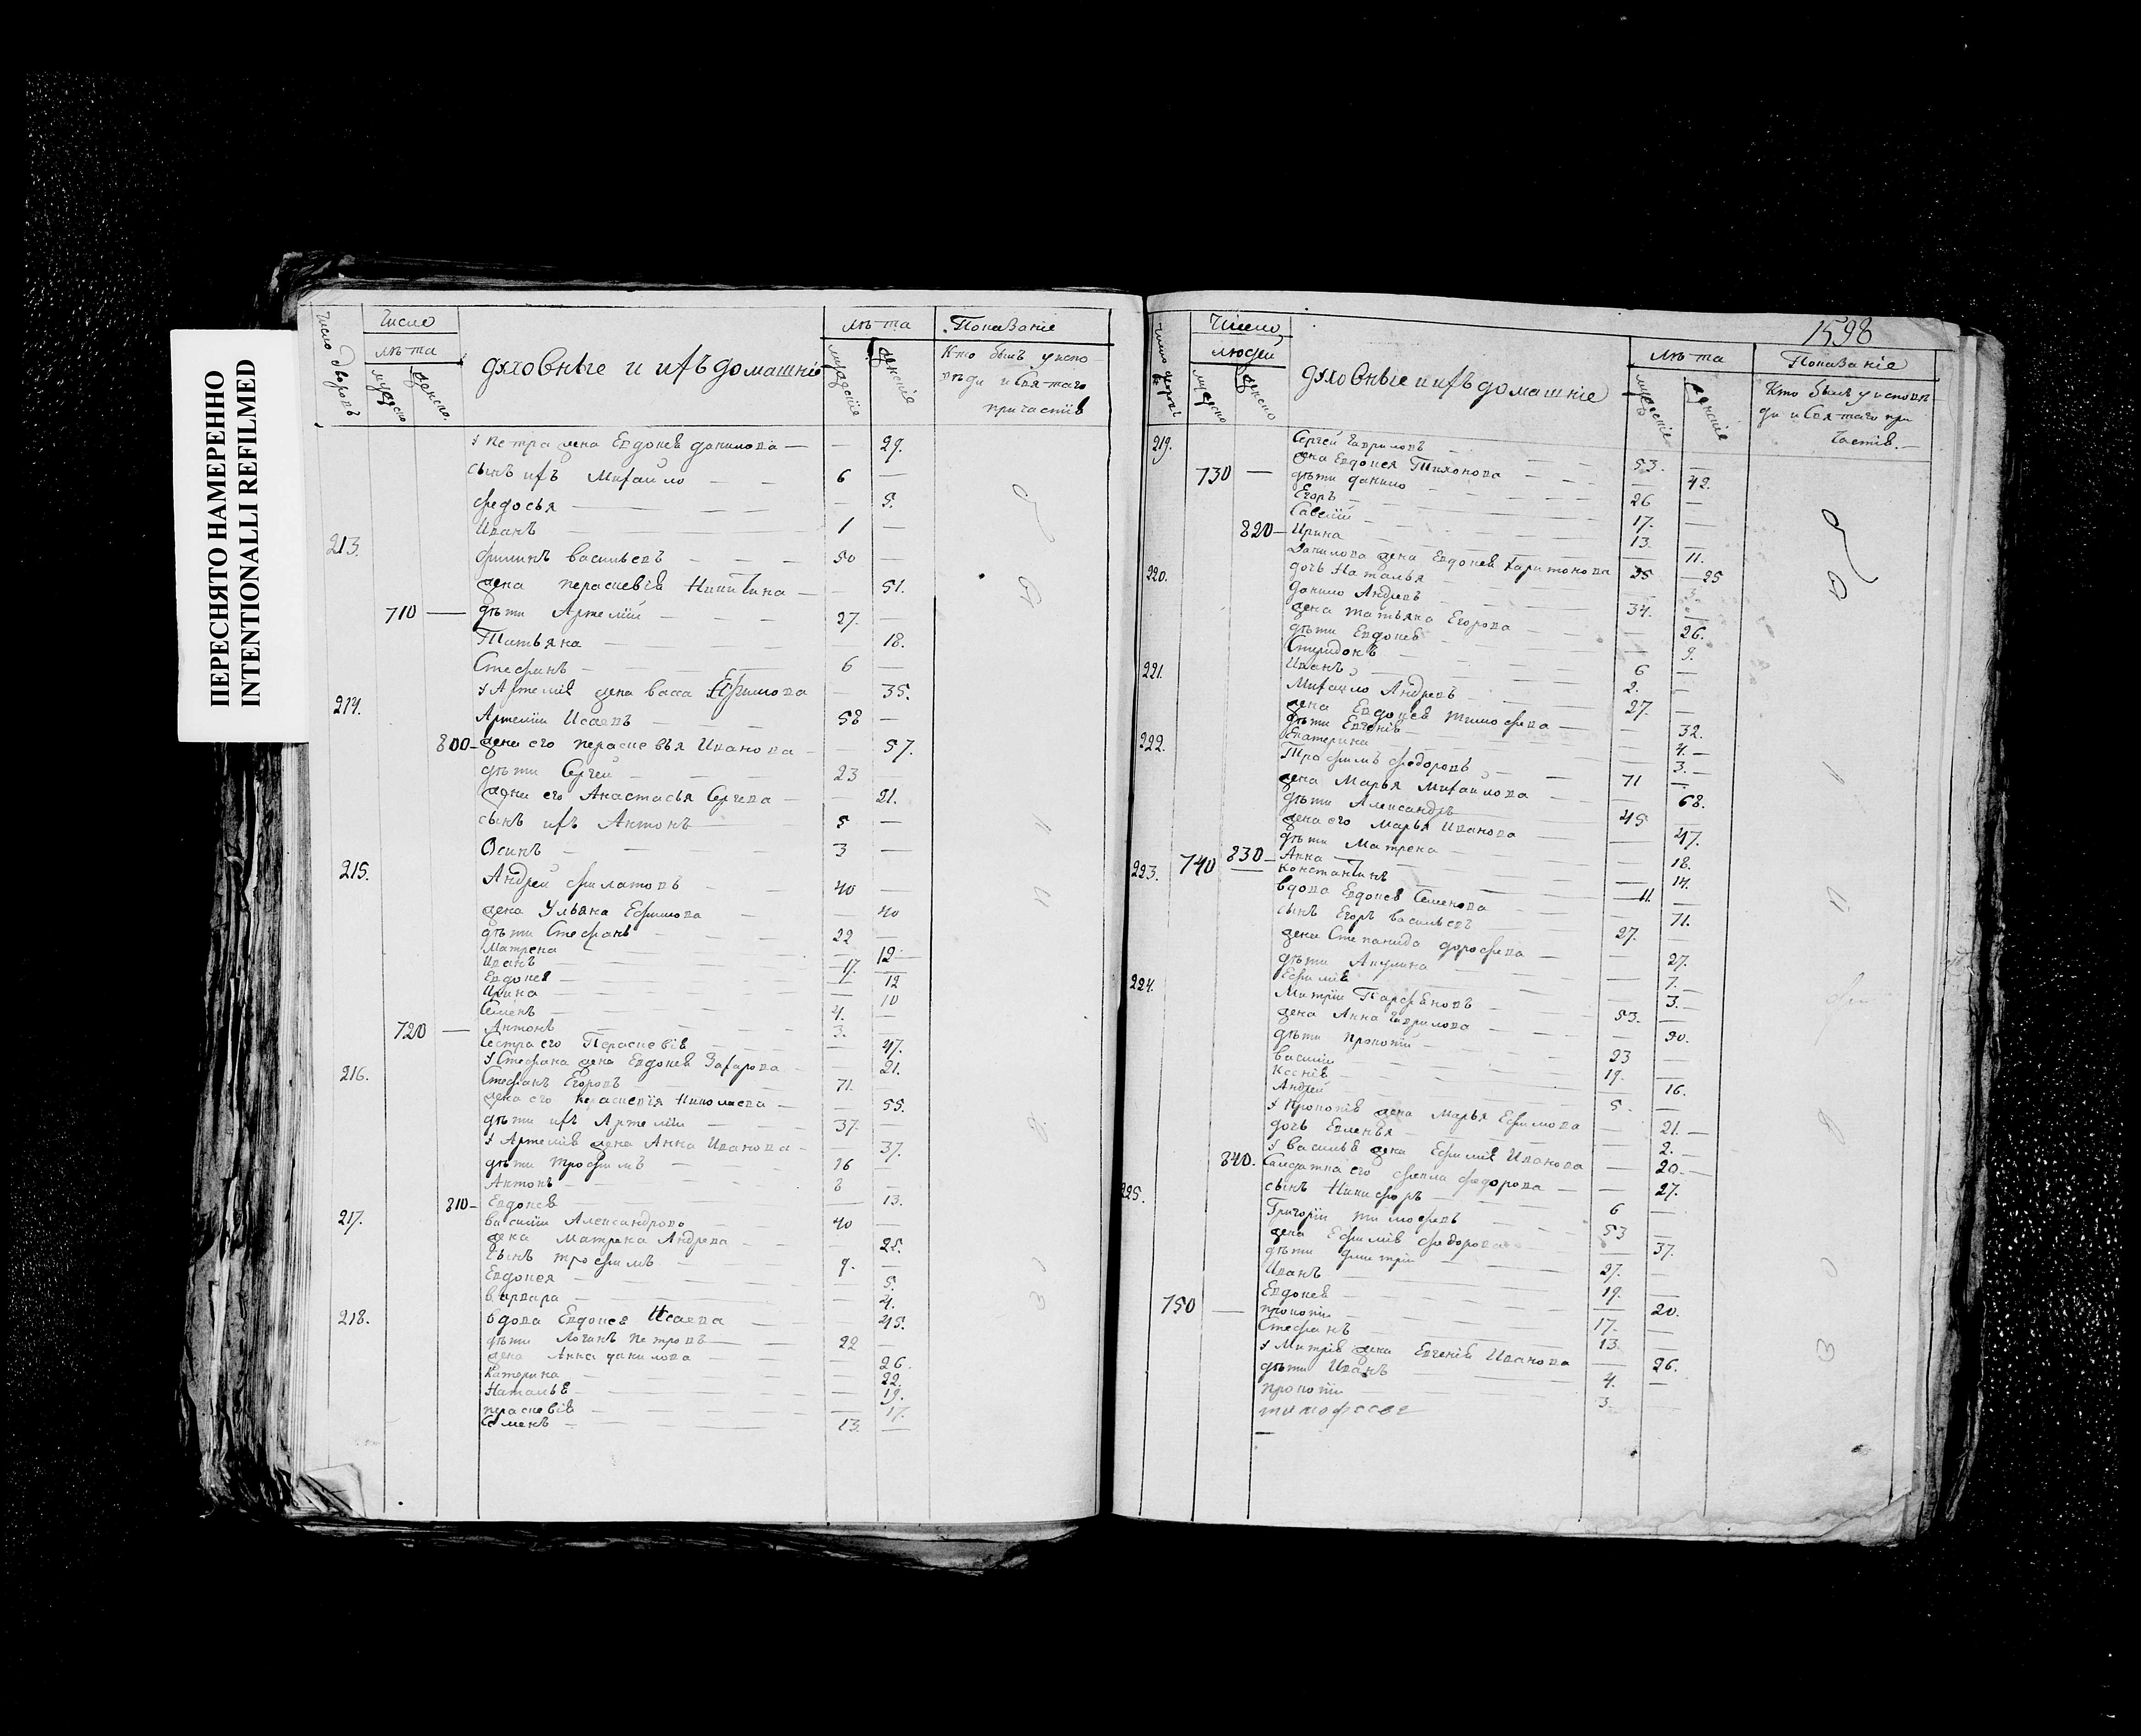 ПЕРЕСНЯТО НАМЕРЕННО
INTENTIONALLI REFILMED
Число дворовъ
Число
лѣ-та
мужеско
женско.
духовные и ихъ домашніе
лѣ-та
мужескіе
женскіе
Показаніе
Кто былъ у испо-
вѣди и Свя-таго
причастія
у Петра жена Евдокея данилова — — 29.
сынъ ихъ Михайло — — 6 —
федосья — — — — 5.
Иванъ — — — 1 —
213. филипъ васильевъ — — — 50 —
жена пераскевія Никитина — — 51.
710 — дѣти Артемій — — — 27. —
Татьяна — — — — 18.
Стефанъ — — — 6 —
у Артемія жена васса Ефимова — 35.
214. Артемій Исаевъ — — — 58 —
800 — жена его пераскевья Иванова — — 57.
дѣти Сергей — — — 23 —
жена его Анастасья Сергева — — 21.
сынъ ихъ Антонъ — — 5 —
Осипъ — — — 3 —
215. Андрей филатовъ — — 40 —
жена Ульяна Ефимова — — 40
дѣти Стефанъ — — — 22 —
Матрена — — — — 12
Иванъ — — — 17. —
Евдокея — — — — 12
Ирина — — — — 10
Семенъ — — — 4. —
720 — Антонъ — — — 3. —
Сестра его Пераскевія — — — 47.
у Стефана жена Евдокея Захарова — — 21.
216. Стефанъ Егоровъ — — 71. —
жена его пераскевія Николаева — — 55.
дѣти ихъ Артемій — — 37. —
у Артемія жена Анна Иванова — — 37.
дѣти трофимъ — — 16 —
Антонъ — — — 8 —
810 — Евдокея — — — — 13.
217. василій Александровъ — — 40 —
жена Матрена Андрева — — 25.
сынъ трофимъ — — — 9. —
Евдокея — — — — 5.
варвара — — — — 4.
218. вдова Евдокея Исаева — — 45.
дѣти Логинъ петровъ — 22 —
жена Анна данилова — — 26.
Катерина — — — — 22.
Наталья — — — — 19.
пераскевія — — — — 17.
Семенъ — — — 13. —
1598
Число дворовъ
Число
людей
мужеско
женско
духовные и ихъ домашніе
лѣ-та
мужескіе
женскіе
Показаніе
Кто былъ у исповѣ-
ди и Свя-таго при
частія.—
219. Сергей Гавриловъ — — 53. —
жена Евдокея Тихонова — — 42.
730 — дѣти данило — — 26 —
Егоръ — — — 17. —
Савелій — — — 13. —
820 — Ирина — — — — 11.
данилова жена Евдокея Харитонова — 25
дочь Наталья — — — 3.
220. данило Андревъ — — 34. —
жена татьяна Егорова — — 26.
дѣти Евдокея — — — 9.
Спиридонъ — — — 6 —
Иванъ — — — 2. —
221. Михайло Андревъ — — 27. —
жена Евдокея тимофева — — 32.
дѣти Евгенія — — — 4. —
Екатерина — — — 3. —
222. Трофимъ федоровъ — — 71 —
жена Марья Михайлова — — 68.
дѣти Александръ — — 45 —
жена его Марья Иванова — — 47.
дѣти Матрена — — — 18.
830 — Анна — — — — 14.
740 — Константинъ — — 11. —
223. вдова Евдокея Семенова — — 71.
сынъ Егоръ васильевъ — 27. —
жена Степанида дорофева — — 27.
дѣти Акулина — — — 7. —
Ефимія — — — — 3. —
224. Митрій Парфеновъ — — 53. —
жена Анна Гаврилова — — 50.
дѣти прокопій — — 23 —
василій — — — 19. —
Ксенія — — — — 16.
Андрей — — — 5. —
у прокопія жена Марья Ефимова — 21. —
дочь Евленья — — — 2. —
у василья жена Ефимія Иванова — 20. —
840. Салдатка его фекла федорова — — 27.
сынъ Никифоръ — — 6 —
225. Григорій тимофевъ — — 53 —
жена Ефимія федорова — — 37.
дѣти дмитрій — — 27. —
Иванъ — — — 19. —
Евдокея — — — — 20.
750 — прокопій — — — 17. —
Стефанъ — — — 13. —
у Митрія жена Евгенія Иванова — 26.
дѣти Иванъ — — 4. —
прокопій — — — 3. —